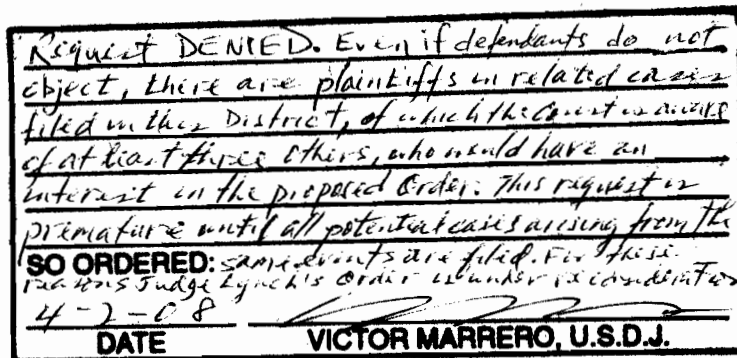 Request DENIED. Even if defendants do not
object, there are plaintiffs in related cases
filed in this District, of which the Court is aware
of at least three others, who would have an
interest in the proposed Order. This request is
premature until all potential cases arising from the
SO ORDERED: same events are filed. For these
reasons Judge Lynch's Order is under reconsideration
4-2-08
DATE VICTOR MARRERO, U.S.D.J.